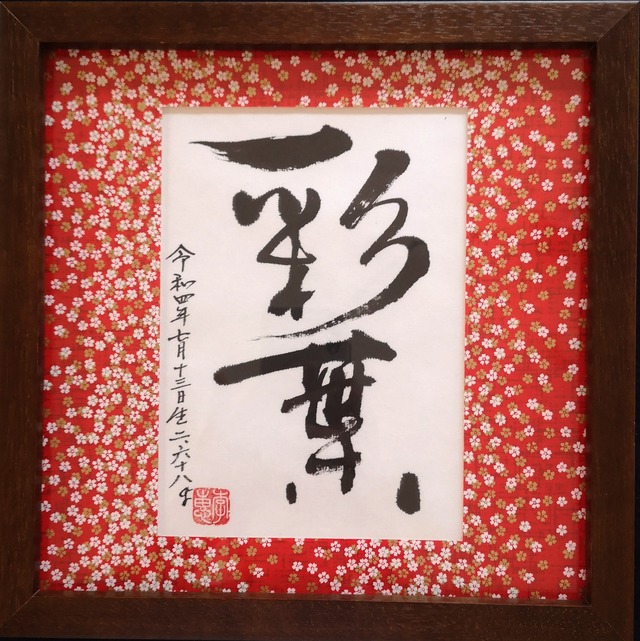 彩葉
令和四年七月十三日生 二、六十八g